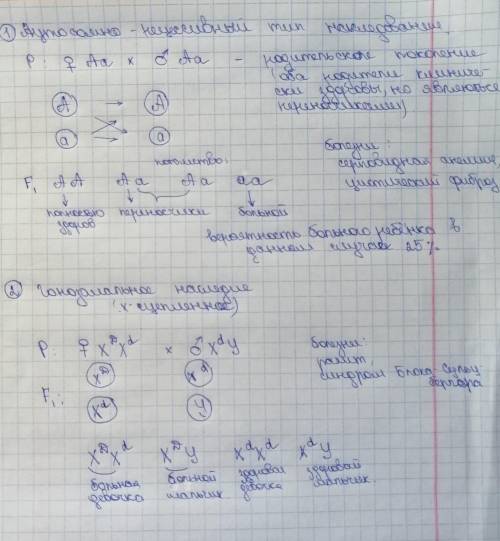 ① Аутосомно-рецессивный тип наследования
P: ♀ Aa × ♂ Aa - родительское поколение
(оба родителя клиниче-
ски здоровы, но являються
переносчиками)
A → A
a → a
потомство:
F₁ AA Aa Aa aa
полностью здоров
переносчики
больной
болезни:
серповидная анемия,
цистический фиброз
вероятность больного ребёнка в
данном случае 25%
② Гоносомальное наследие
(x-сцепленное)
P: ♀ XᴰXᵈ × ♂ XᵈY
Xᴰ Xᵈ
F₁:
Xᵈ Y
болезни:
рахит,
синдром Блоха-Сульц
бергера
XᴰXᵈ XᴰY XᵈXᵈ XᵈY
больная девочка
больной мальчик
здоровая девочка
здоровый мальчик.